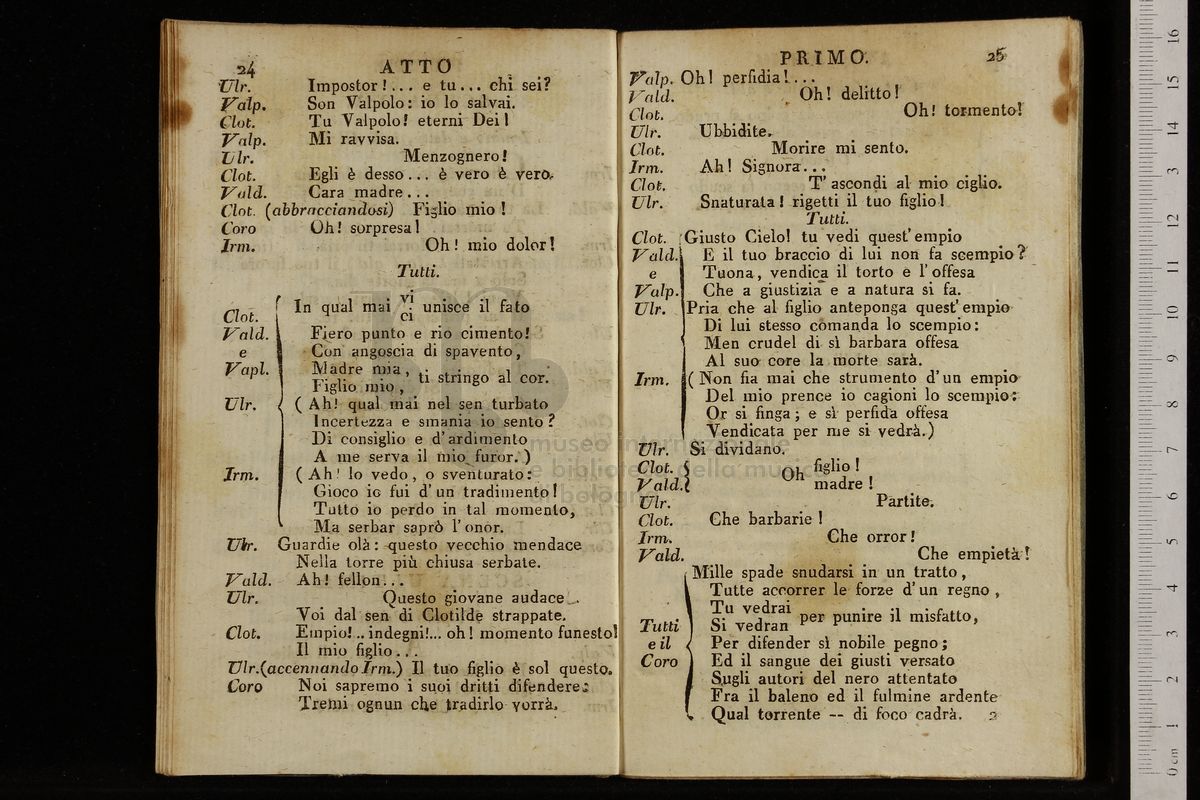 24 ATTO
Ulr. Impostor!... e tu... chi sei?
Valp. Son Valpolo: io lo salvai.
Clot. Tu Valpolo! eterni Dei!
Valp. Mi ravvisa.
Ulr. Menzognero!
Clot. Egli è desso... è vero è vero.
Vald. Cara madre...
Clot. (abbracciandosi) Figlio mio!
Coro Oh! sorpresa!
Irm. Oh! mio dolor!
Tutti.
Clot. In qual mai vi unisce il fato
ci
Vald. Fiero punto e rio cimento!
e Con angoscia di spavento,
Vapl. Madre mia, ti stringo al cor.
Figlio mio,
Ulr. (Ah! qual mai nel sen turbato
Incertezza e smania io sento?
Di consiglio e d'ardimento
A me serva il mio furor.)
Irm. (Ah! lo vedo, o sventurato:
Gioco io fui d'un tradimento!
Tutto io perdo in tal momento,
Ma serbar saprò l'onor.
Ulr. Guardie olà: questo vecchio mendace
Nella torre più chiusa serbate.
Vald. Ah! fellon...
Ulr. Questo giovane audace
Voi dal sen di Clotilde strappate.
Clot. Empio!.. indegni!... oh! momento funesto!
Il mio figlio...
Ulr. (accennando Irm.) Il tuo figlio è sol questo.
Coro Noi sapremo i suoi dritti difendere:
Tremi ognun che tradirlo vorrà.
PRIMO. 25
Valp. Oh! perfidia!...
Vald. Oh! delitto!
Clot. Oh! tormento!
Ulr. Ubbidite.
Clot. Morire mi sento.
Irm. Ah! Signora...
Clot. T'ascondi al mio ciglio.
Ulr. Snaturata! rigetti il tuo figlio!
Tutti.
Clot. Giusto Cielo! tu vedi quest'empio
Vald. E il tuo braccio di lui non fa scempio?
e Tuona, vendica il torto e l'offesa
Valp. Che a giustizia e a natura si fa.
Ulr. Pria che al figlio anteponga quest'empio
Di lui stesso comanda lo scempio:
Men crudel di sì barbara offesa
Al suo core la morte sarà.
Irm. (Non fia mai che strumento d'un empio
Del mio prence io cagioni lo scempio:
Or si finga; e sì perfida offesa
Vendicata per me si vedrà.)
Ulr. Si dividano.
Clot. Oh figlio!
Vald. madre!
Ulr. Partite.
Clot. Che barbarie!
Irm. Che orror!
Vald. Che empietà!
Mille spade snudarsi in un tratto,
Tutte accorrer le forze d'un regno,
Tu vedrai per punire il misfatto,
Tutti Si vedran
e il Per difender sì nobile pegno;
Coro Ed il sangue dei giusti versato
Sugli autori del nero attentato
Fra il baleno ed il fulmine ardente
Qual torrente -- di foco cadrà. 2
museo internazionale
e biblioteca della musica
di bologna
0 cm 1 2 3 4 5 6 7 8 9 10 11 12 13 14 15 16